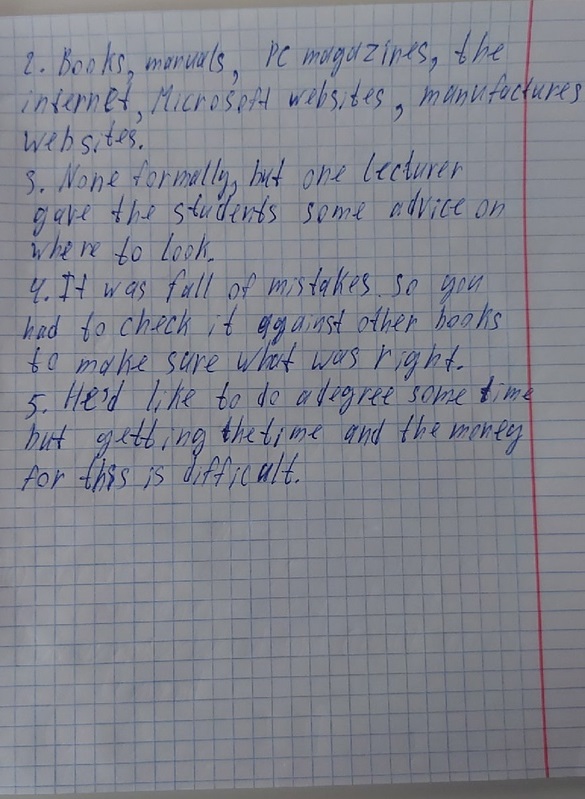 2. Books, manuals, PC magazines, the
internet, Microsoft websites, manufactures
websites.
3. None formally, but one lecturer
gave the students some advice on
where to look.
4. It was full of mistakes. so you
had to check it against other books
to make sure what was right.
5. He'd like to do a degree some time
but getting the time and the money
for this is difficult.